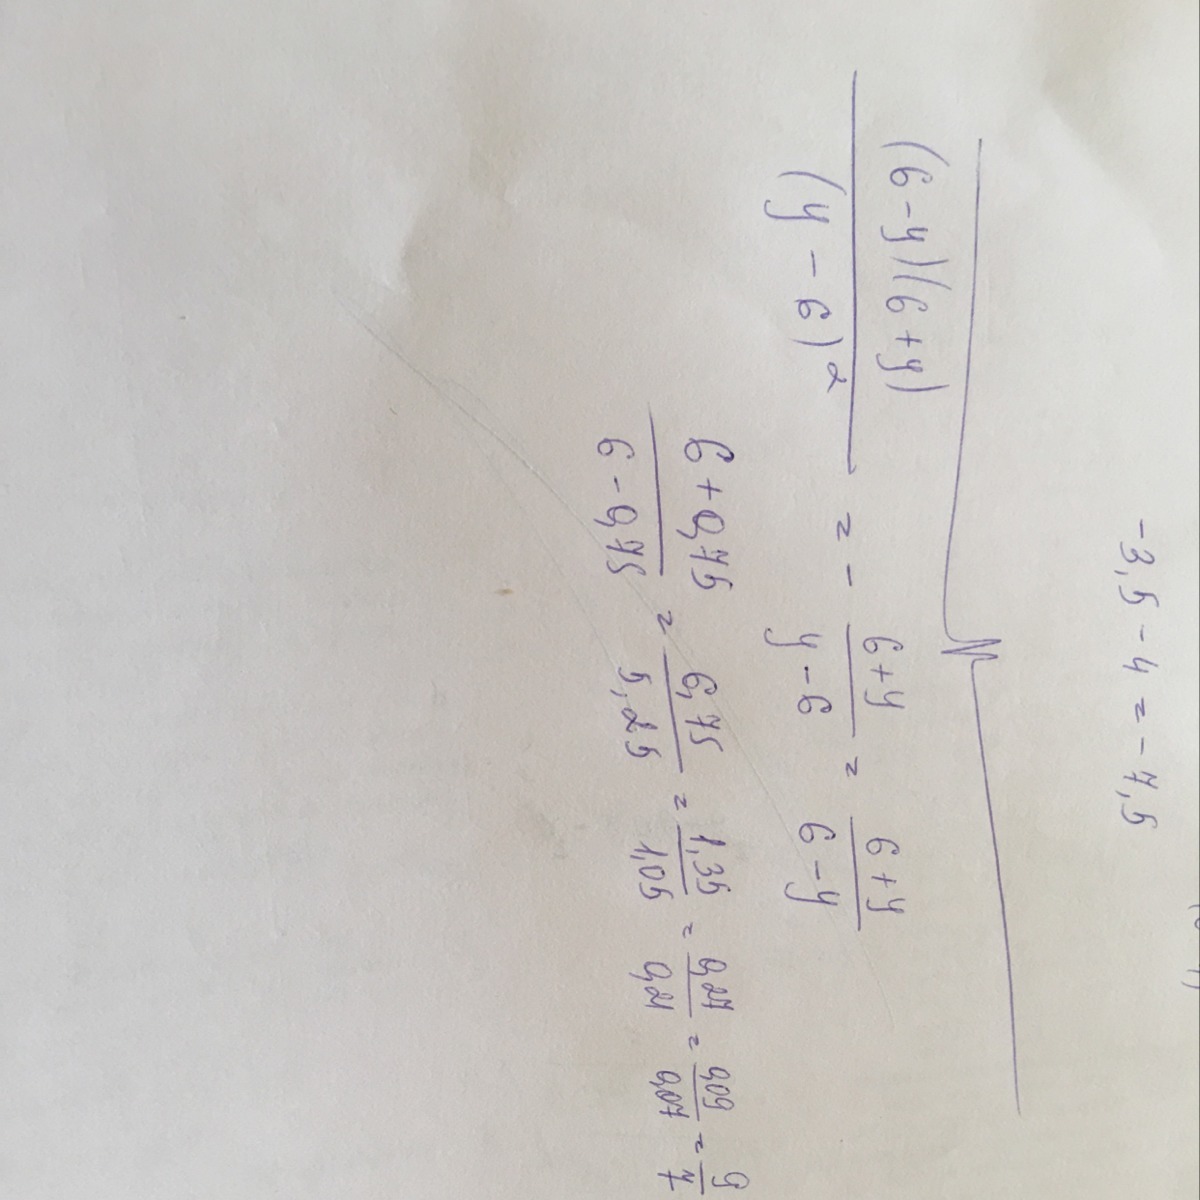 -3,5 - 4 = -7,5
(6-y)(6+y)/(y-6)² = - (6+y)/(y-6) = (6+y)/(6-y)
(6+0,75)/(6-0,75) = 6,75/5,25 = 1,35/1,05 = 0,27/0,21 = 0,09/0,07 = 9/7